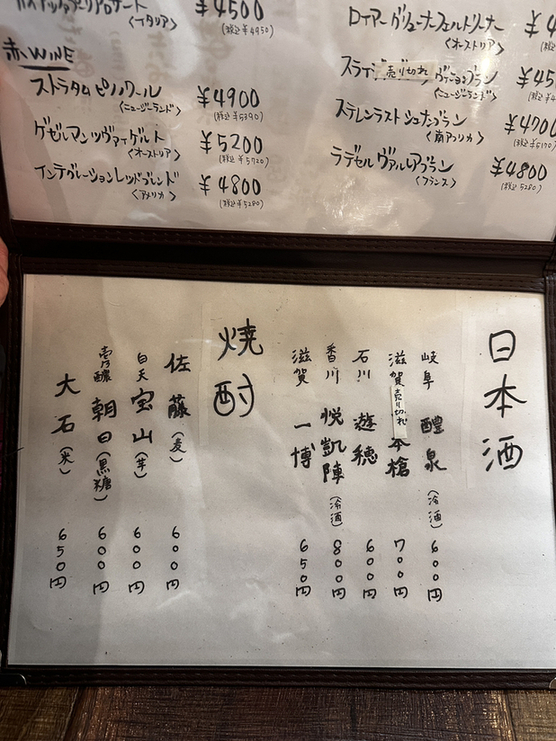 ¥4500
〈イタリア〉
(税込¥4950)
赤WINE
ストラタム ピノノワール
¥4900
〈ニュージーランド〉
(税込¥5390)
ゲゼルマン ツヴァイゲルト
¥5200
〈オーストリア〉
(税込¥5720)
インテグレーションレッドブレンド
¥4800
〈アメリカ〉
(税込¥5280)
ロイアー グリューナーフェルトリーナー
〈オーストリア〉
売り切れ
〈ニュージーランド〉
ステレンラスト シュナンブラン
¥4700
〈南アフリカ〉
(税込¥5170)
ラデセル ヴァルルアブラン
¥4800
〈フランス〉
(税込5280)
日本酒
岐阜 醴泉(冷酒) 600円
滋賀 売り切れ 本槍 700円
石川 遊穂 600円
香川 悦凱陣(冷酒) 800円
滋賀 一博 650円
焼酎
佐藤(麦) 600円
白天宝山(芋) 600円
壱乃醸 朝日(黒糖) 600円
大石(米) 650円